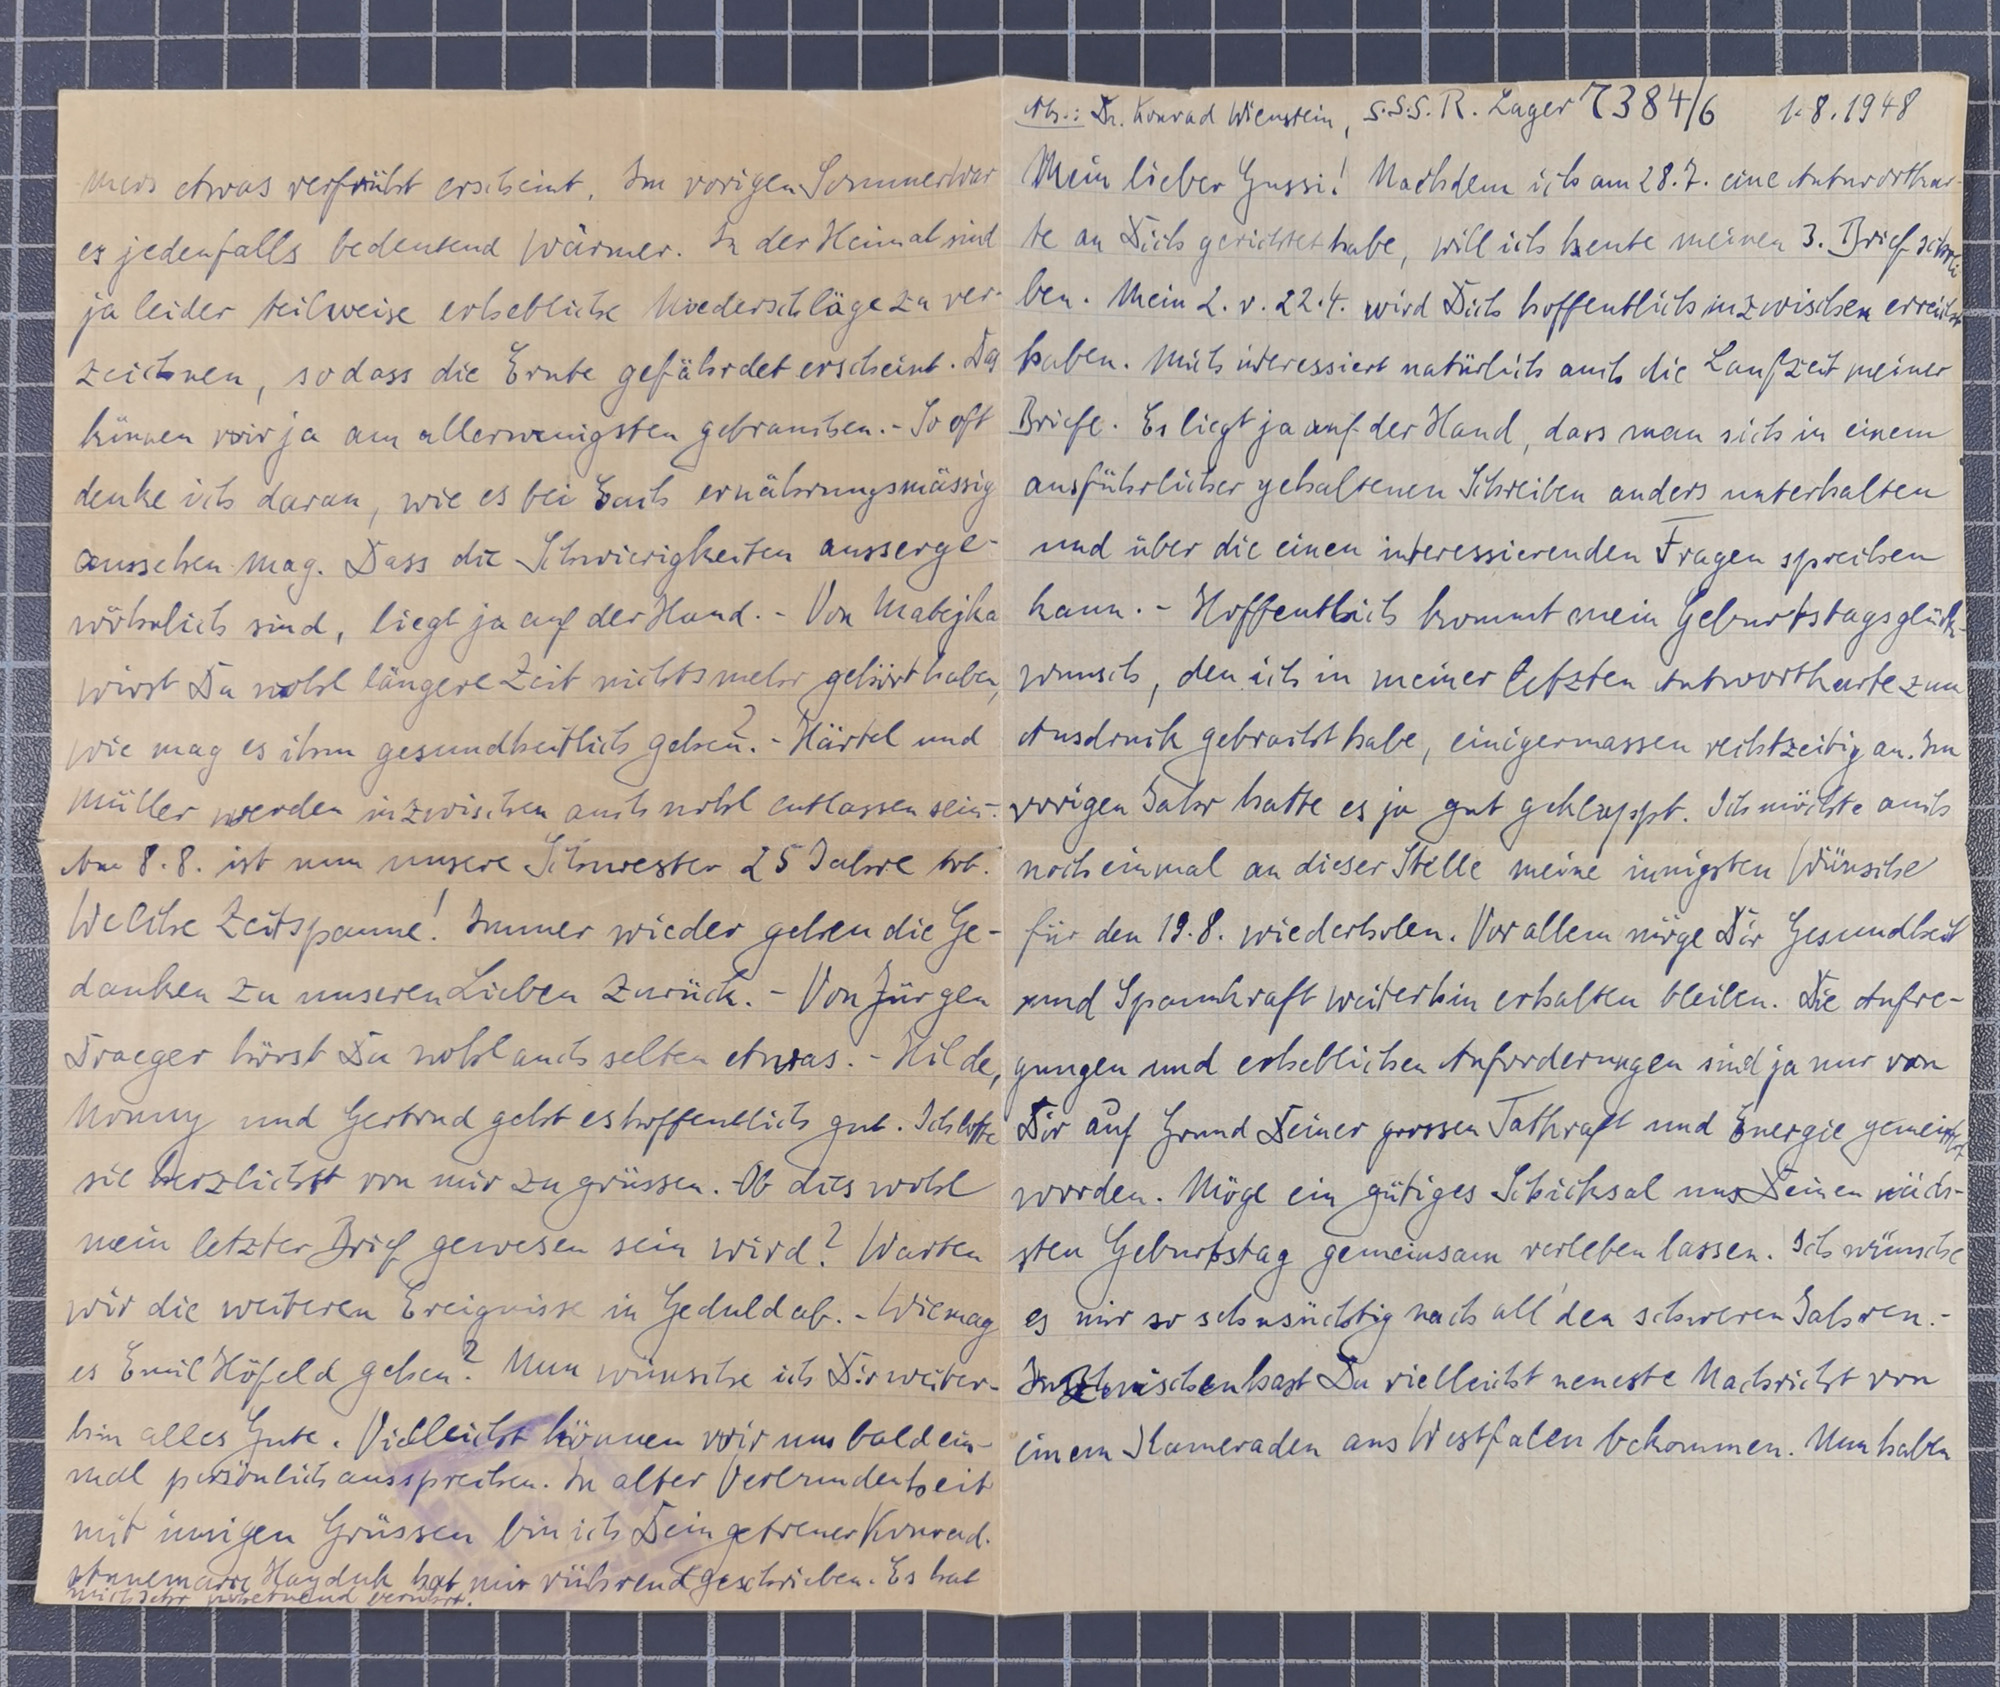 Abs.: Dr. Konrad Wienstein, S.S.S.R. Lager 7384/6 1.8.1948
Mein lieber Gussi! Nachdem ich am 28.7. eine Antwortkar-
te an Dich gerichtet habe, will ich heute meinen 3. Brief schrei
ben. Mein 2. v. 22.4. wird Dich hoffentlich inzwischen erreicht
haben. Mich interessiert natürlich auch die Laufzeit meiner
Briefe. Es liegt ja auf der Hand, dass man sich in einem
ausführlicher gehaltenen Schreiben anders unterhalten
und über die einen interessierenden Fragen sprechen
kann. - Hoffentlich kommt mein Geburtstagsglück-
wunsch, den ich in meiner letzten Antwortkarte zum
Ausdruck gebracht habe, einigermassen rechtzeitig an. Im
vorigen Jahr hatte es ja gut geklappt. Ich möchte auch
noch einmal an dieser Stelle meine innigsten Wünsche
für den 19.8. wiederholen. Vor allem möge Dir Gesundheit
und Spannkraft weiterhin erhalten bleiben. Die Aufre-
gungen und erheblichen Anforderungen sind ja nur von
Dir auf Grund Deiner grossen Tatkraft und Energie gemeistert
worden. Möge ein gütiges Schicksal uns Deinen näch-
sten Geburtstag gemeinsam verleben lassen. Ich wünsche
es mir so sehnsüchtig nach all' den schweren Jahren. -
Inzwischen hast Du vielleicht neueste Nachricht von
einem Kameraden aus Westfalen bekommen. Nun haben
mers etwas verfrüht erscheint. Im vorigen Sommer war
es jedenfalls bedeutend wärmer. In der Heimat sind
ja leider teilweise erhebliche Niederschläge zu ver-
zeichnen, sodass die Ernte gefährdet erscheint. Das
können wir ja am allerwenigsten gebrauchen. - So oft
denke ich daran, wie es bei Euch ernährungsmässig
aussehen mag. Dass die Schwierigkeiten ausserge-
wöhnlich sind, liegt ja auf der Hand. - Von Matejka
wirst Du wohl längere Zeit nichts mehr gehört haben,
wie mag es ihm gesundheitlich gehen? - Härtel und
Müller werden inzwischen auch wohl entlassen sein. -
Am 8.8. ist nun unsere Schwester 25 Jahre tot.
Welche Zeitspanne! Immer wieder gehen die Ge-
danken zu unseren Lieben zurück. - Von Jürgen
Traeger hörst Du wohl auch selten etwas. - Hilde,
Nonny und Gertrud geht es hoffentlich gut. Ich bitte
sie herzlichst von mir zu grüssen. - Ob dies wohl
mein letzter Brief gewesen sein wird? Warten
wir die weiteren Ereignisse in Geduld ab. - Wie mag
es Emil Höfeld gehen? Nun wünsche ich Dir weiter-
hin alles Gute. Vielleicht können wir uns bald ein-
mal persönlich aussprechen. In alter Verbundenheit
mit innigen Grüssen bin ich Dein getreuer Konrad.
Annemarie Hayduk hat mir rührend geschrieben. Es hat
mich sehr wohltuend berührt.